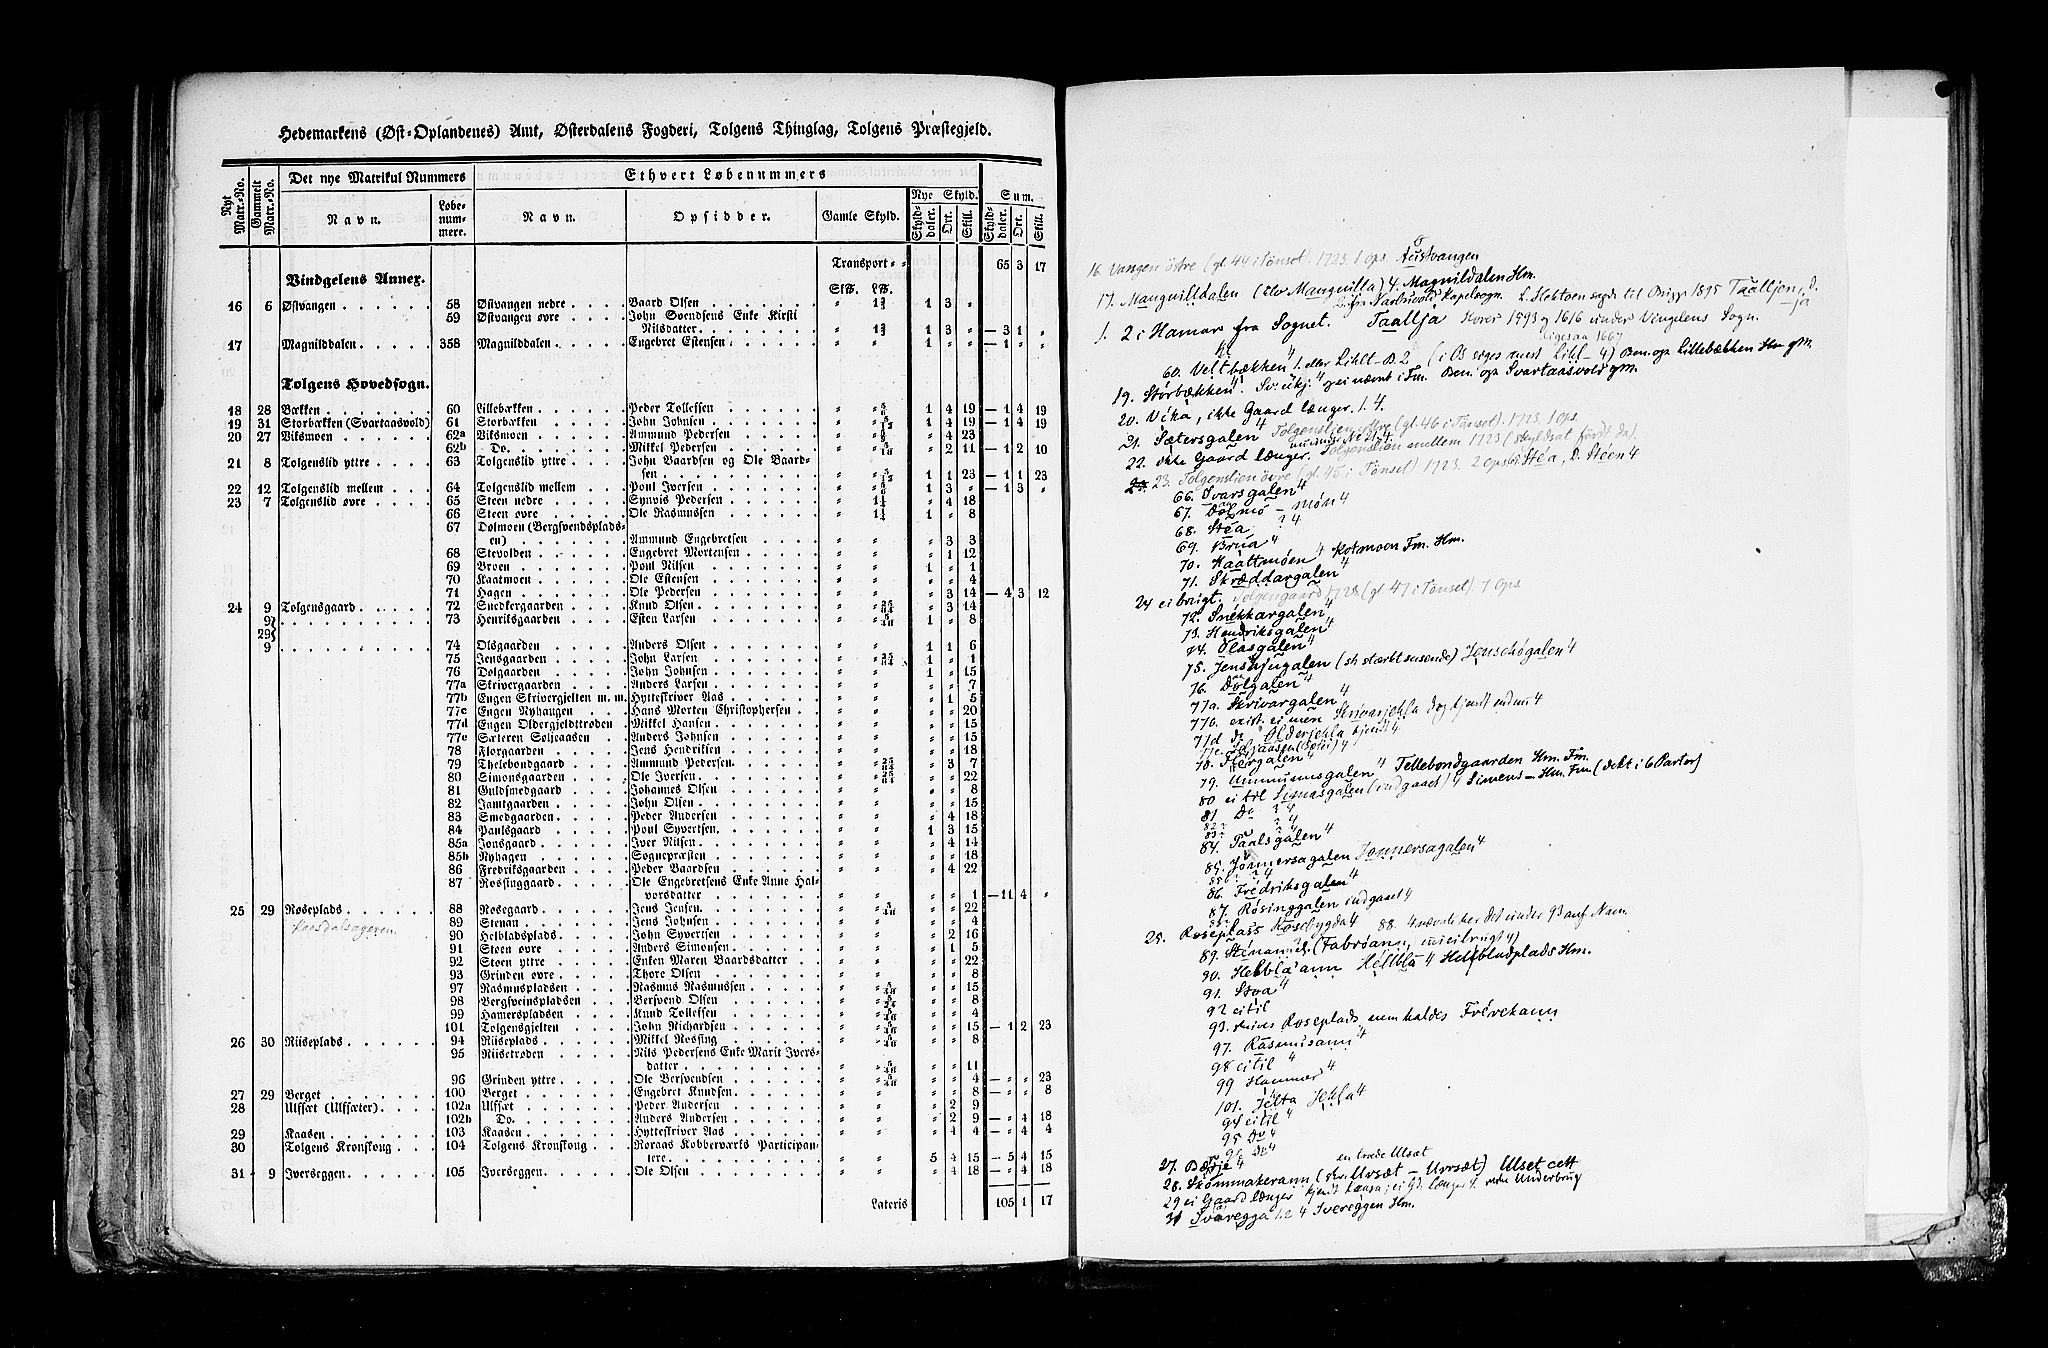 Hedemarkens (Øst-Oplandenes) Amt, Østerdalens Fogderi, Tolgens Thinglag, Tolgens Præstegjeld.
Nyt Matr.-No. Gammelt Matr.-No. Det nye Matrikul Nummers Ethvert Løbenummers
Navn. Løbe-num-mere. Navn. Opsidder. Gamle Skyld. Nye Skyld. Sum.
Skyld-daler. Ort. Skill. Skyld-daler. Ort. Skill.
Transport 65 3 17
Vindgelens Annex.
16 6 Østvangen 58 Østvangen nedre Baard Olsen 1 3 "
59 Østvangen øvre John Svendsens Enke Kirsti
Nilsdatter 1 3 " — 3 1 "
17 Magnilddalen 358 Magnilddalen Engebret Estensen " 1 " — 1 "
Tolgens Hovedsogn.
18 28 Bækken 60 Lillebækken Peder Tollefsen 1 4 19 — 1 4 19
19 31 Storbækken (Svartaasvold) 61 Storbækken John Johnsen 1 4 19 — 1 4 19
20 27 Viksmoen 62a Viksmoen Ammund Pedersen " 4 23
62b Do. Mikkel Pedersen " 2 11 — 1 2 10
21 8 Tolgenslid yttre 63 Tolgenslid yttre John Baardsen og Ole Baard-
sen 1 1 23 — 1 1 23
22 12 Tolgenslid mellem 64 Tolgenslid mellem Poul Iversen 1 3 " — 1 3 "
23 7 Tolgenslid øvre 65 Steen nedre Synvis Pedersen " 4 18
66 Steen øvre Ole Rasmussen 1 " 8
67 Dolmoen (Bergsvendsplads-
en) Ammund Engebretsen " 3 3
68 Stevolden Engebret Mortensen " 1 12
69 Broen Poul Nilsen 1 " 1
70 Kaatmoen Ole Estensen " " 4
71 Hagen Ole Pedersen " 3 14 — 4 3 12
24 9 Tolgensgaard 72 Snedkergaarden Knud Olsen " 3 14
9 73 Henriksgaarden Esten Larsen 1 " 8
29
9 74 Olsgaarden Anders Olsen 1 1 6
75 Jensgaarden John Larsen 1 " 1
76 Dolgaarden John Johnsen 1 " 15
77a Skrivergaarden Anders Larsen " " 7
77b Engen Skrivergjelten m. m. Hytteskriver Aas " 1 5
77c Engen Nyhaugen Hans Morten Christophersen " " 20
77d Engen Oldergjeldttrøden Mikkel Hansen " " 15
77e Sæteren Soljeaasen Anders Johnsen " " 15
78 Florgaarden Jens Hendriksen " " 18
79 Thelebondgaard Ammund Pedersen " 3 7
80 Simonsgaarden Ole Iversen " " 22
81 Guldsmedgaard Johannes Olsen " " 8
82 Jamtgaarden John Olsen " " 15
83 Smedgaarden Peder Andersen " 4 18
84 Paulsgaard Poul Syvertsen 1 3 15
85a Jonsgaard Iver Nilsen " 4 14
85b Nyhagen Sognepræsten " " 18
86 Fredriksgaarden Peder Baardsen " 4 22
87 Røssinggaard Ole Engebretsens Enke Anne Hal-
vorsdatter " " 1 — 11 4 "
25 29 Røseplads 88 Røsegaard Jens Jensen " " 22
89 Stenan Jens Johnsen " " 4
90 Helbladsplads John Syvertsen " 2 16
91 Stoen øvre Anders Simonsen " 1 5
92 Stoen yttre Enken Maren Baardsdatter " " 22
93 Grinden øvre Thore Olsen " " 8
97 Rasmuspladsen Rasmus Rasmussen " " 15
98 Bergsveinspladsen Bersvend Olsen " " 8
99 Hamerspladsen Knud Tollefsen " " 4
101 Tolgensgjelten John Richardsen " " 15 — 1 2 23
26 30 Riiseplads 94 Riiseplads Mikkel Røssing " " 8
95 Riisetrøden Nils Pedersens Enke Marit Ivers-
datter " " 11
96 Grinden yttre Ole Bersvendsen " " 4 — " " 23
27 29 Berget 100 Berget Engebret Knudsen " " 8 — " " 8
28 Ulfsæt (Ulfsæter) 102a Ulfsæt Peder Andersen " 2 9
102b Do. Anders Andersen " 2 9 — " 4 18
29 Kaasen 103 Kaasen Hytteskriver Aas " 4 4 — " 4 4
30 Tolgens Kronskoug 104 Tolgens Kronskoug Røraas Kobberværks Participan-
tere 5 4 15 — 5 4 15
31 9 Iverseggen 105 Iverseggen Ole Olsen " 4 18 — " 4 18
Lateris 105 1 17
16. Vangen østre (gl. 44 i Tønset) 1723. 1 Ops Austvangen
17. Magnilldalen (elv Mangnilla) 4. Magnildalen Hm.
1. 2 i Hamar fra Sognet. Taallja Horer 1593 og 1616 under Vingelens Sogn.
ligesaa 1667
60. Veltbækken 1. eller Lihlt-B. 2
19. Storbækken
20. Vika, ikke Gaard længer. 1. 4.
21. Sætersgalen 4 Tolgenslien ytre (gl. 46 i Tønset). 1723. 1 Ops
22. ikke Gaard længer. Tolgenslien mellem 1723
23. Tolgenslien øvre (gl. 45 i Tønset) 1723. 2 Ops 65 Stea, D. Steen 4
66. Ivarsgalen 4
67. Dølmo - moen 4
68. Stea ? 4
69. Brua 4
70. Kaattmoen 4 Kotmoen Fm. Hm.
71. Skræddargalen 4
24 ei brugt. Tolgengaard 1723 (gl. 47 i Tønset) 7 Ops
72. Snekkargalen 4
73. Hendriksgalen 4
74. Olasgalen 4
75. Jenshjugalen (sh stærkt susende) Jenschøgalen 4
76. Dølgalen 4
77a. Skrivargalen 4
77b. exist. ei men Skrivarjehla dog kjendt endnu 4
77d Do Olderjehla kjendt 4
78. Florgalen 4
79. Ammunnsgalen 4 Tellebondgaarden Hm. Fm.
80 ei til Simensgalen (indgaaet) 4 Simens - Hm. Fm (delt i 6 Parter)
81 Do ? 4
84. Paalsgalen 4
85. Jonnersagalen Jonnersagalen 4
86. Fredriksgalen 4
87. Røsinggalen indgaaet 4
25. Roseplass Rosebygda 4
90. Hellbla'ann Hellbla 4 Hellbladplads Hm.
91. Stoa 4
92 ei til
93. skrives Roseplads men kaldes Frevekann
97. Rasmusann 4
98 ei til 4
99 Hammer 4
101. Jelta Jehla 4
94 ei til 4
95 Do 4
96 Do 4
27. Bærje 4
28. Skommakerann (skr. Ulvsæt - Urrsæt) Ulset cett
29 ei Gaard længer
31 Ivaregga 1. 2 4 Ivereggen Hm.